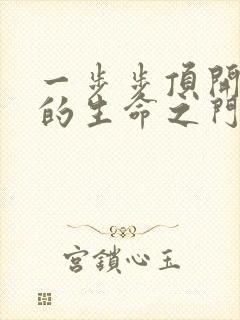 一步步頂開
的生命之門
宮鎖心玉